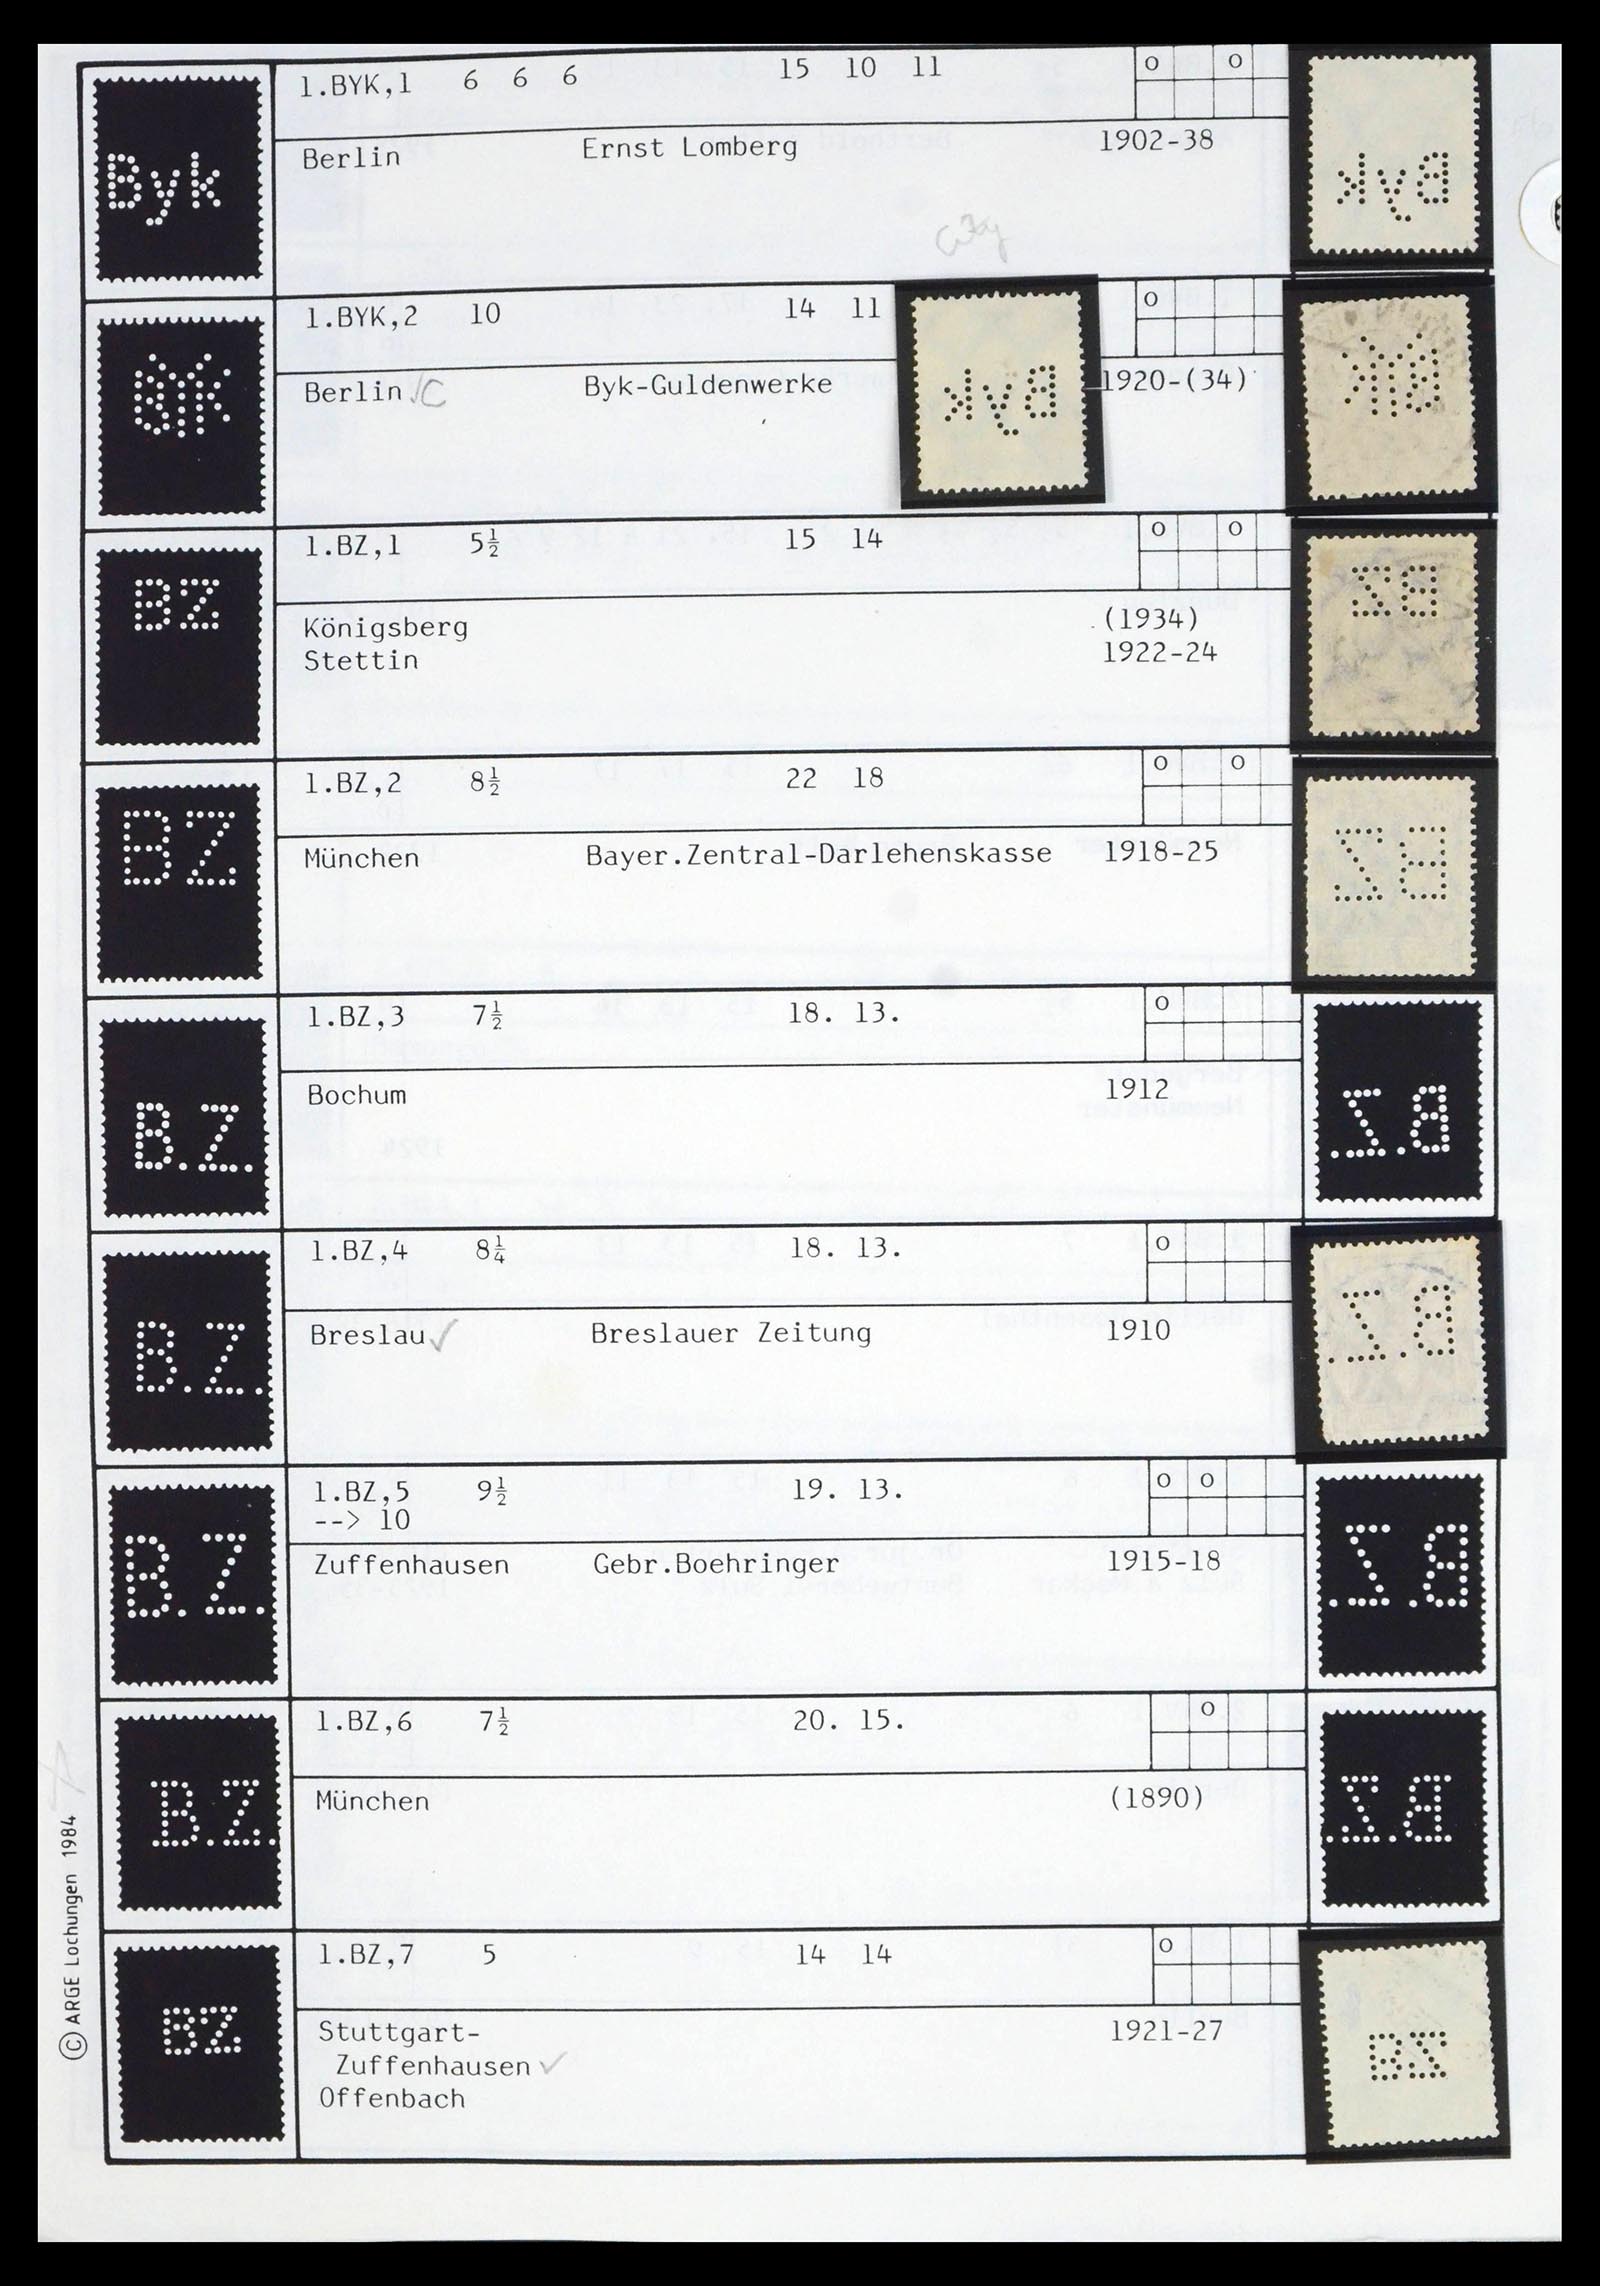 Byk
1.BYK,1 6 6 6 15 10 11 o o
Berlin Ernst Lomberg 1902-38
Byk
BYK
1.BYK,2 10 14 11 o
Berlin Byk-Guldenwerke 1920-(34)
Byk
BYK
BZ
1.BZ,1 5½ 15 14 o o
Königsberg (1934)
Stettin 1922-24
BZ
BZ
1.BZ,2 8½ 22 18 o o
München Bayer.Zentral-Darlehenskasse 1918-25
BZ
B.Z.
1.BZ,3 7½ 18. 13. o
Bochum 1912
B.Z.
B.Z.
1.BZ,4 8¼ 18. 13. o
Breslau ✓ Breslauer Zeitung 1910
B.Z.
B.Z.
1.BZ,5 9½ 19. 13. o o
--> 10
Zuffenhausen Gebr.Boehringer 1915-18
B.Z.
B.Z.
1.BZ,6 7½ 20. 15. o
München (1890)
B.Z.
BZ
1.BZ,7 5 14 14 o
Stuttgart-
Zuffenhausen ✓ 1921-27
Offenbach
BZ
© ARGE Lochungen 1984